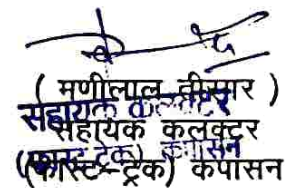 ( मणीलाल तीरगर )
सहायक कलक्टर
सहायक कलक्टर
(फास्ट ट्रेक) कपासन
(फास्ट-ट्रेक) कपासन